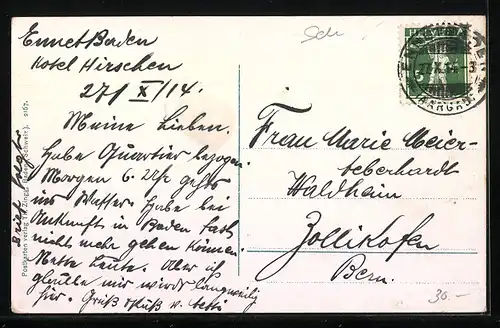 Ennet Baden
Hotel Hirschen
27/X/14.
Meine Lieben.
Habe Quartier bezogen
Morgen 6 Uhr gehts
ins Wasser. Habe bei
Ankunft in Baden fast
nicht mehr gehen können.
Nette Leute. Aber ich
glaube mir wirds langweilig
hier. Gruß & Kuß v.
Brief folgt
Frau Marie Meier-
Eberhardt
Waldheim
Zollikofen
Bern.
HELVETIA
5
(AARGAU)
Postkarten verlag
2167.
30.-